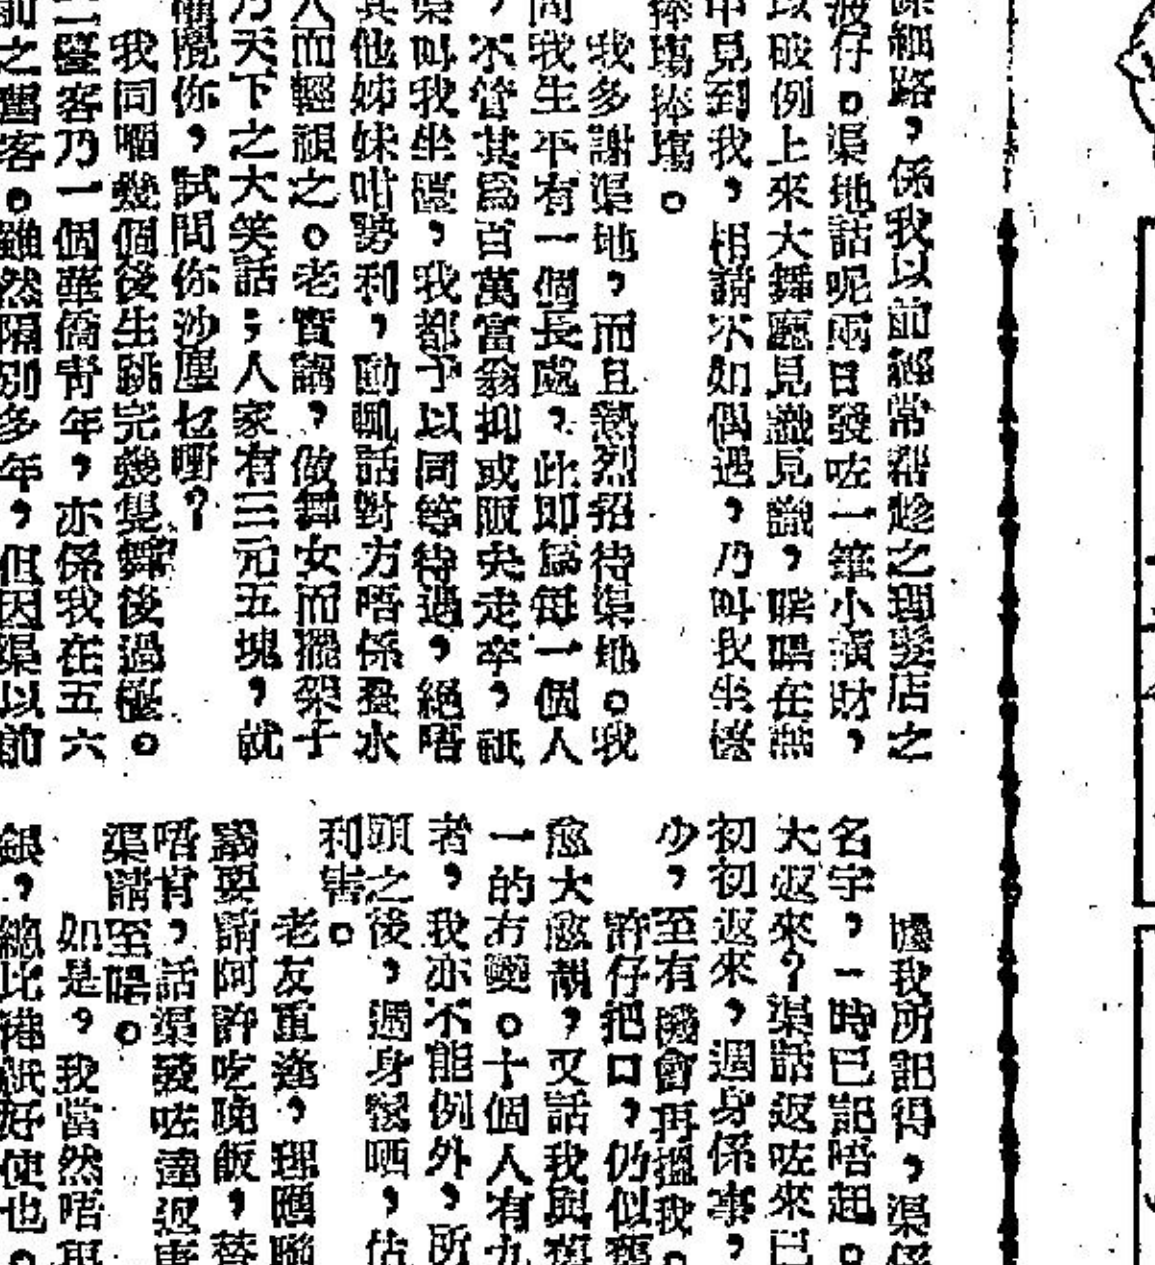 係細路，係我以前經常幫趁之理髮店之
波仔。渠地話呢兩日發咗一筆小橫財，
以破例上來大舞廳見識見識，啱啱在無
中見到我，相請不如偶遇，乃叫我坐檯
捧塲捧塲。
我多謝渠地，而且熱烈招待渠地。我
間我生平有一個長處，此即爲每一個人
，不管其爲百萬富翁抑或販夫走卒，祇
渠叫我坐檯，我都予以同等待遇，絕唔
其他姊妹咁勢利，動輒話對方唔係叠水
人而輕視之。老實講，做舞女而擺架子
乃天下之大笑話；人家有三元五塊，就
你，試問你沙塵乜嘢？
我同嗰幾個後生跳完幾隻舞後過檯。
二檯客乃一個華僑青年，亦係我在五六
前之舊客。雖然隔別多年，但因渠以前
據我所記得，渠係
名字，一時已記唔起。
大返來？渠話返咗來已
初初返來，週身係事，
少，至有機會再搵我。
許仔把口，仍似舊
愈大愈靚，又話我與舊
一的冇變。十個人有九
者，我亦不能例外，所
頭之後，週身鬆晒，估
利害。
老友重逢，理應聯
議要請阿許吃晚飯，替
唔肯，話渠發咗達返唐
渠請至啱。
如是，我當然唔再
銀，總比港紙好使也。